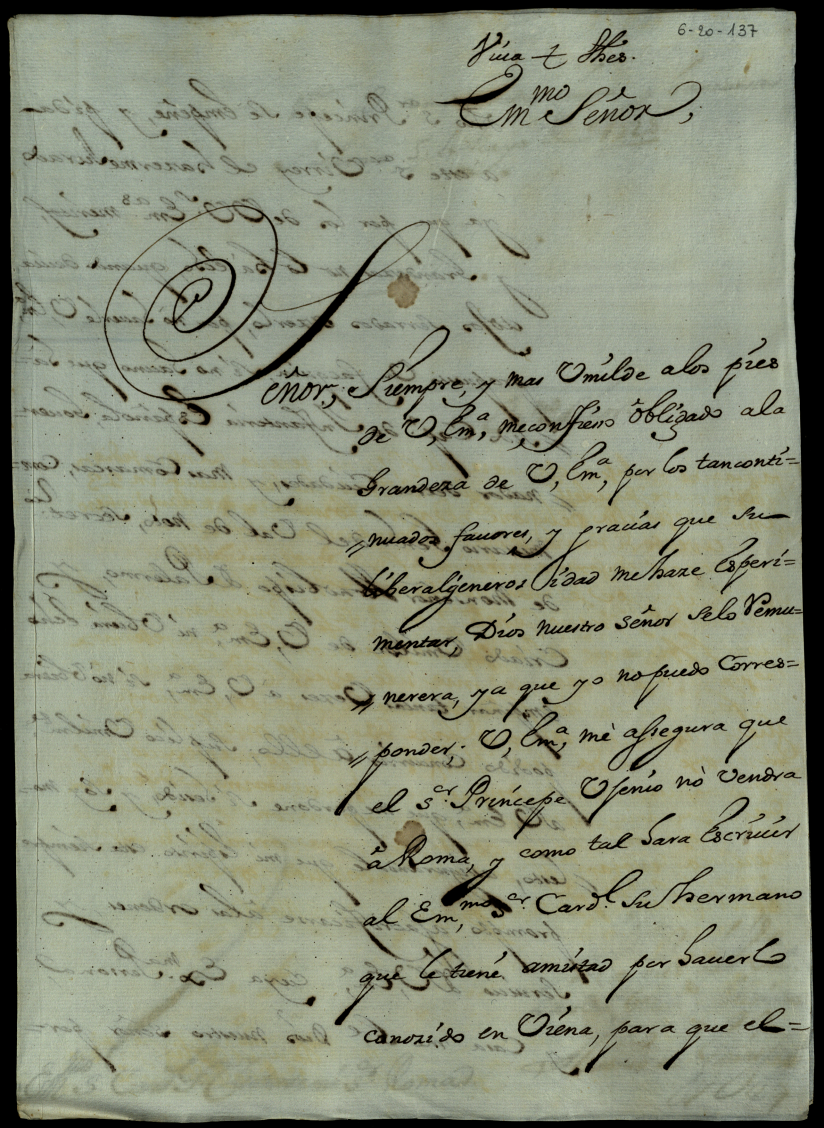 6-20-137
Viua + Jhes.
Em,mo Señor,
Señor, Siempre, y mas Vmilde a los pies
de V, Em,a, me confieso obligado a la
Grandeza de V, Em,a, por los tan conti=
nuados fauores, y gracias que su
liberal generossidad me haze Esperi=
mentar, Dios nuestro señor se lo Remu=
nerera, ya que yo no puedo Corres=
ponder; V, Em,a, mè assegura que
el s.r Principe Vsenio nò vendra
à Roma, y como tal hara Escriuir
al Em,mo s.r Card.l su hermano
que le tiene amistad por hauerlo
conozido en Viena, para que el=